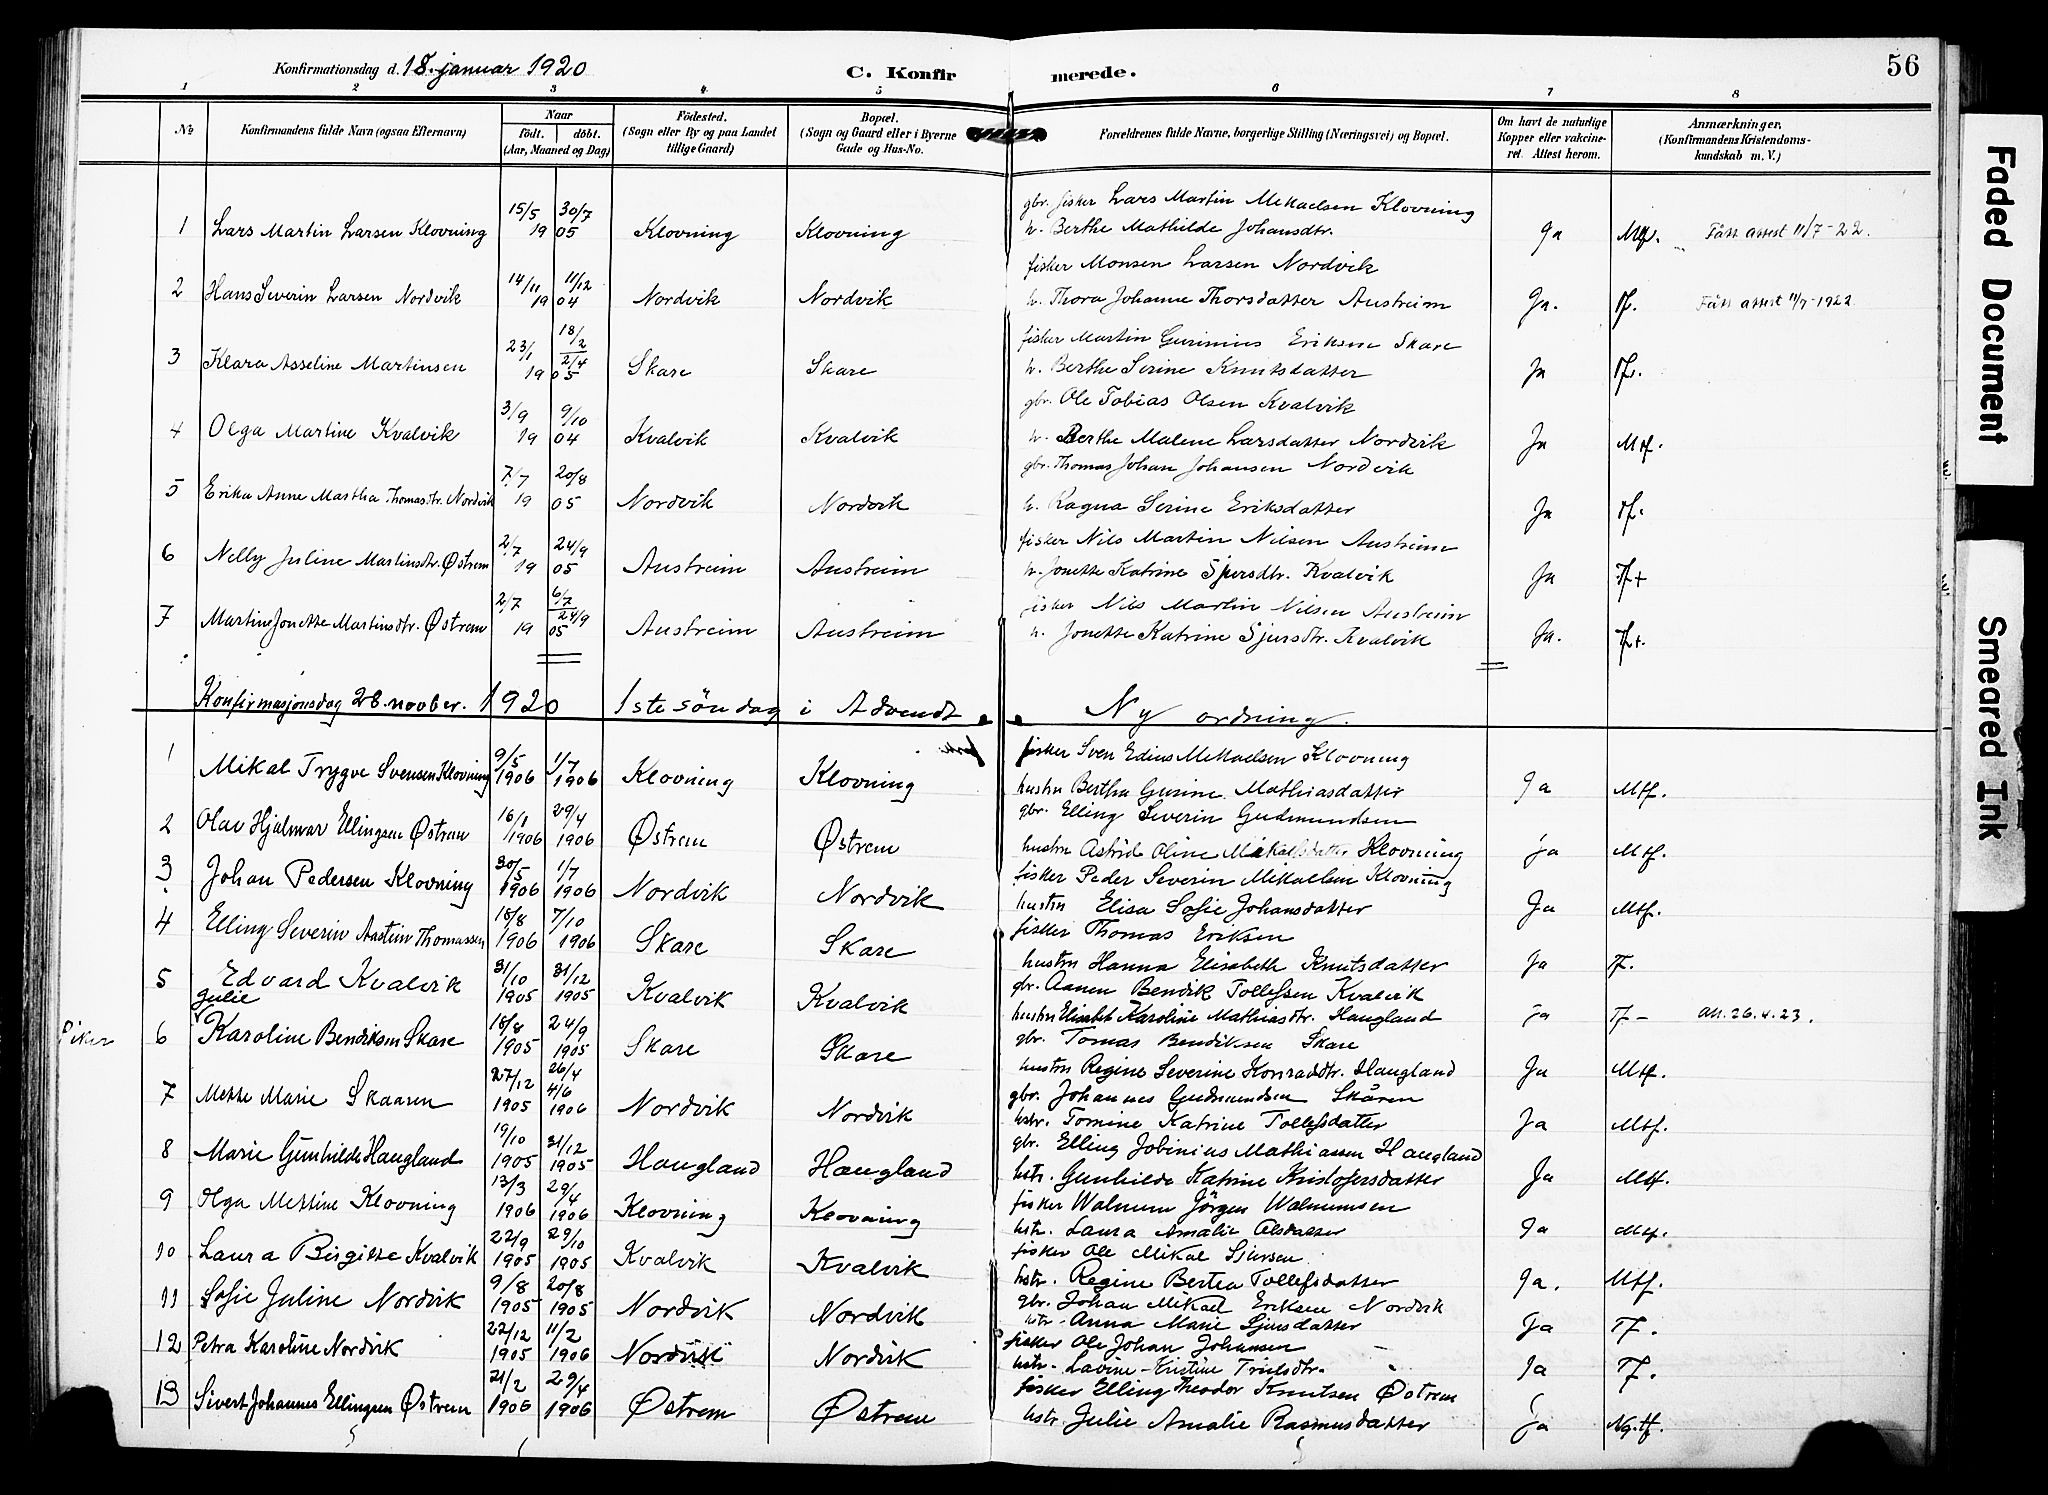 Konfirmationsdag d. 18. januar 1920 C. Konfirmerede. 56
1 2 3 4 5 6 7 8
No Konfirmandens fulde Navn (ogsaa Efternavn) Naar født. døbt. (Aar, Maaned og Dag) Fødested. (Sogn eller By og paa Landet tillige Gaard) Bopæl. (Sogn og Gaard eller i Byerne Gade og Hus-No. Forældrenes fulde Navne, borgerlige Stilling (Næringsvei) og Bopæl. Om havt de naturlige Kopper eller vakcineret. Attest herom. Anmærkninger. (Konfirmandens Kristendomskundskab m. V.)
gbr. fisker Lars Martin Mekaelsen Klovning
1 Lars Martin Larsen Klovning 15/5 1905 30/7 05 Klovning Klovning h. Berthe Mathilde Johansdtr. Ja Mtf. Fått attest 11/7-22.
fisker Monsen Larsen Nordvik
2 Hans Severin Larsen Nordvik 14/11 1904 11/12 04 Nordvik Nordvik h. Thora Johanne Thorsdatter Austreim Ja. Tf. Fått attest 11/7-1922
fisker Martin Gurinius Eriksen Skare
3 Klara Asseline Martinsen 23/1 1905 18/2 2/4 Skare Skare h. Berthe Serine Knutsdatter Ja Tf.
gbr. Ole Tobias Olsen Kvalvik
4 Olga Martine Kvalvik 3/9 1904 9/10 Kvalvik Kvalvik h. Berthe Malene Larsdatter Nordvik Ja Mtf.
gbr. Thomas Johan Johansen Nordvik
5 Erika Anne Martha Thomasdtr. Nordvik 7/7 1905 20/8 Nordvik Nordvik h. Ragna Serine Eriksdatter Ja Tf.
fisker Nils Martin Nilsen Austreim
6 Nelly Juline Martinsdtr. Østrem 2/7 1905 24/9 Austreim Austreim h. Jonette Katrine Sjursdtr. Kvalvik Ja Tf+
fisker Nils Martin Nilsen Austreim
7 Martine Jonette Martinsdtr. Østrem 2/7 1905 6/7 24/9 Austreim Austreim h. Jonette Katrine Sjursdtr. Kvalvik Ja. Tf+.
Konfirmasjonsdag 28. novber. 1920 1ste søndag i Advendt. Ny ordning.
fisker Sven Edius Mekaelsen Klovning
1 Mikal Trygve Svensen Klovning 9/5 1906 1/7 1906 Klovning Klovning hustru Bertha Gurine Mathiasdatter Ja Mtf.
gbr. Elling Severin Gudmundsen
2 Olav Hjalmar Ellingsen Østrem 16/1 1906 29/4 1906 Østrem Østrem hustru Astrid Oline Mikalsdatter Klovning ja Mtf.
fisker Peder Severin Mikaelsen Klovning
3 Johan Pedersen Klovning 30/5 1906 1/7 1906 Nordvik Nordvik hustru Elisa Sofie Johansdatter Ja Mtf.
fisker Thomas Eriksen
4 Elling Severin Thomassen 18/8 1906 7/10 1906 Skare Skare hustru Hanna Elisabeth Knutsdatter Ja Tf.
gbr. Aanen Bendik Tollefsen Kvalvik
5 Edvard Kvalvik 31/10 1905 31/12 1905 Kvalvik Kvalvik hustru Elisabet Karoline Mathiasdtr. Haugland ja Tf- att. 26.4.23.
gbr. Tomas Bendiksen Skare
Piker 6 Julie Karoline Bendiksen Skare 18/8 1905 24/9 1905 Skare Skare hustru Regine Severine Konraddtr. Haugland Ja Mtf.
gbr. Johannes Gudmundsen Skåren
7 Mette Marie Skaaren 27/12 1905 26/4 4/6 1906 Nordvik Nordvik hstr. Tomine Katrine Tollefsdatter Ja Mtf.
gbr. Elling Jobinius Mathiassen Haugland
8 Marie Gunhilde Haugland 19/10 1905 31/12 1905 Haugland Haugland hstr. Gunhilde Katrine Kristofersdatter Ja Mtf.
fisker Walnum Jørgen Walnumsen
9 Olga Mettine Klovning 13/3 1906 29/4 1906 Klovning Klovning hstr. Laura Amalie Olsdatter Ja Mtf.
fisker Ole Mikal Sjursen
10 Laura Birgitte Kvalvik 22/9 1905 29/10 1905 Kvalvik Kvalvik hstr. Regine Bertea Tollefsdatter Ja. Mtf.
gbr. Johan Mikael Eriksen Nordvik
11 Sofie Juline Nordvik 9/8 1905 20/8 1905 Nordvik Nordvik hstr. Anna Marie Sjursdatter Ja Tf.
fisker Ole Johan Johansen
12 Petra Karoline Nordvik 22/12 1905 11/2 1906 Nordvik Nordvik hstr. Lavine Kristine Trulsdtr. Ja Tf.
fisker Elling Theodor Knutsen Østrem
13 Sivert Johannes Ellingsen Østrem 21/2 1906 29/4 1906 Østrem Østrem hstr. Julie Amalie Rasmusdatter Ja Ng.tf.
Faded Document
Smeared Ink